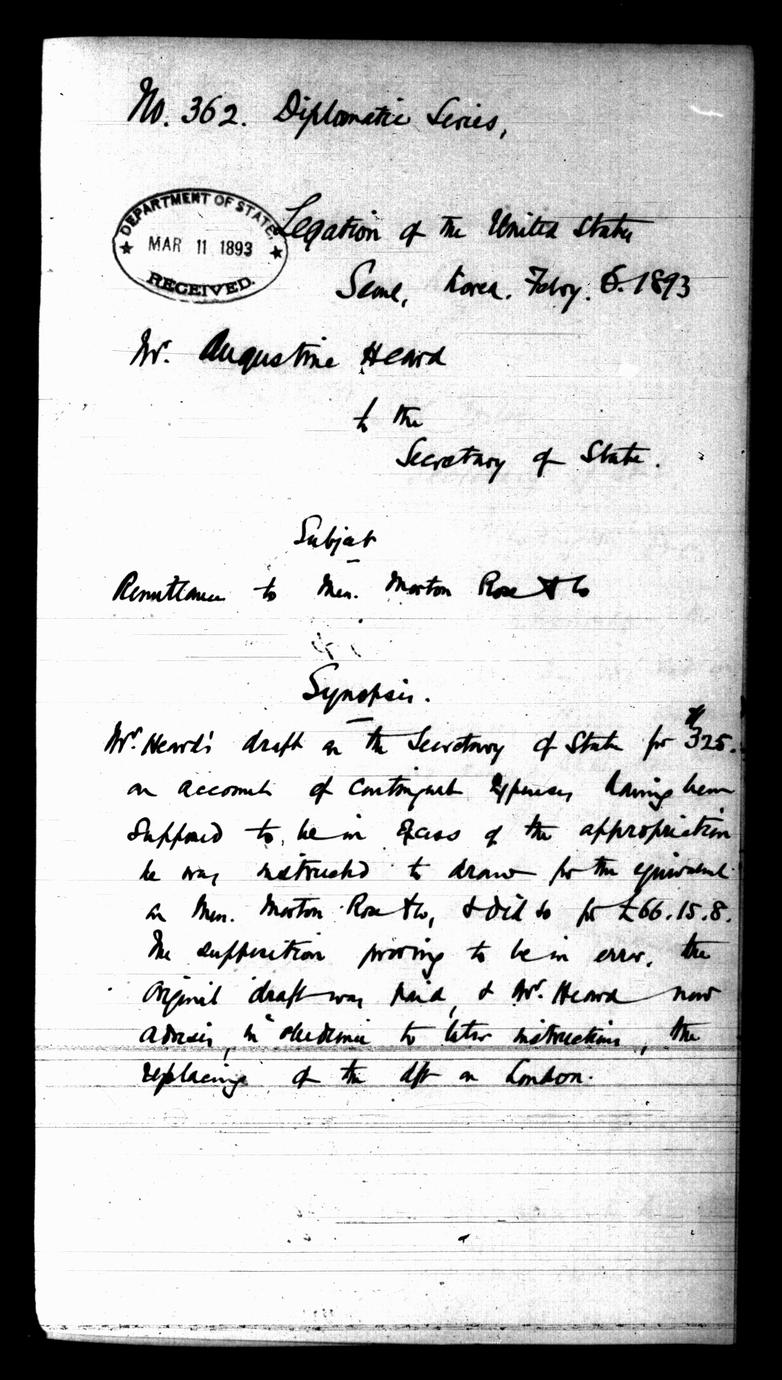 No. 362. Diplomatic Series,
DEPARTMENT OF STATE
MAR 11 1893
RECEIVED.
Legation of the United States
Seoul, Korea. Febry. 6. 1893
Mr. Augustine Heard
to the
Secretary of State.
Subject
Remittance to Messrs. Morton Rose & Co
Synopsis.
Mr. Heard's draft on the Secretary of State for $325.
on account of Contingent Expenses, having been
supposed to be in excess of the appropriation
he was instructed to draw for the equivalent
on Messrs. Morton Rose & Co, & did so for £66.15.8.
The supposition proving to be in error, the
original draft was paid, & Mr. Heard now
advises, in obedience to later instructions, the
replacing of the dft on London.